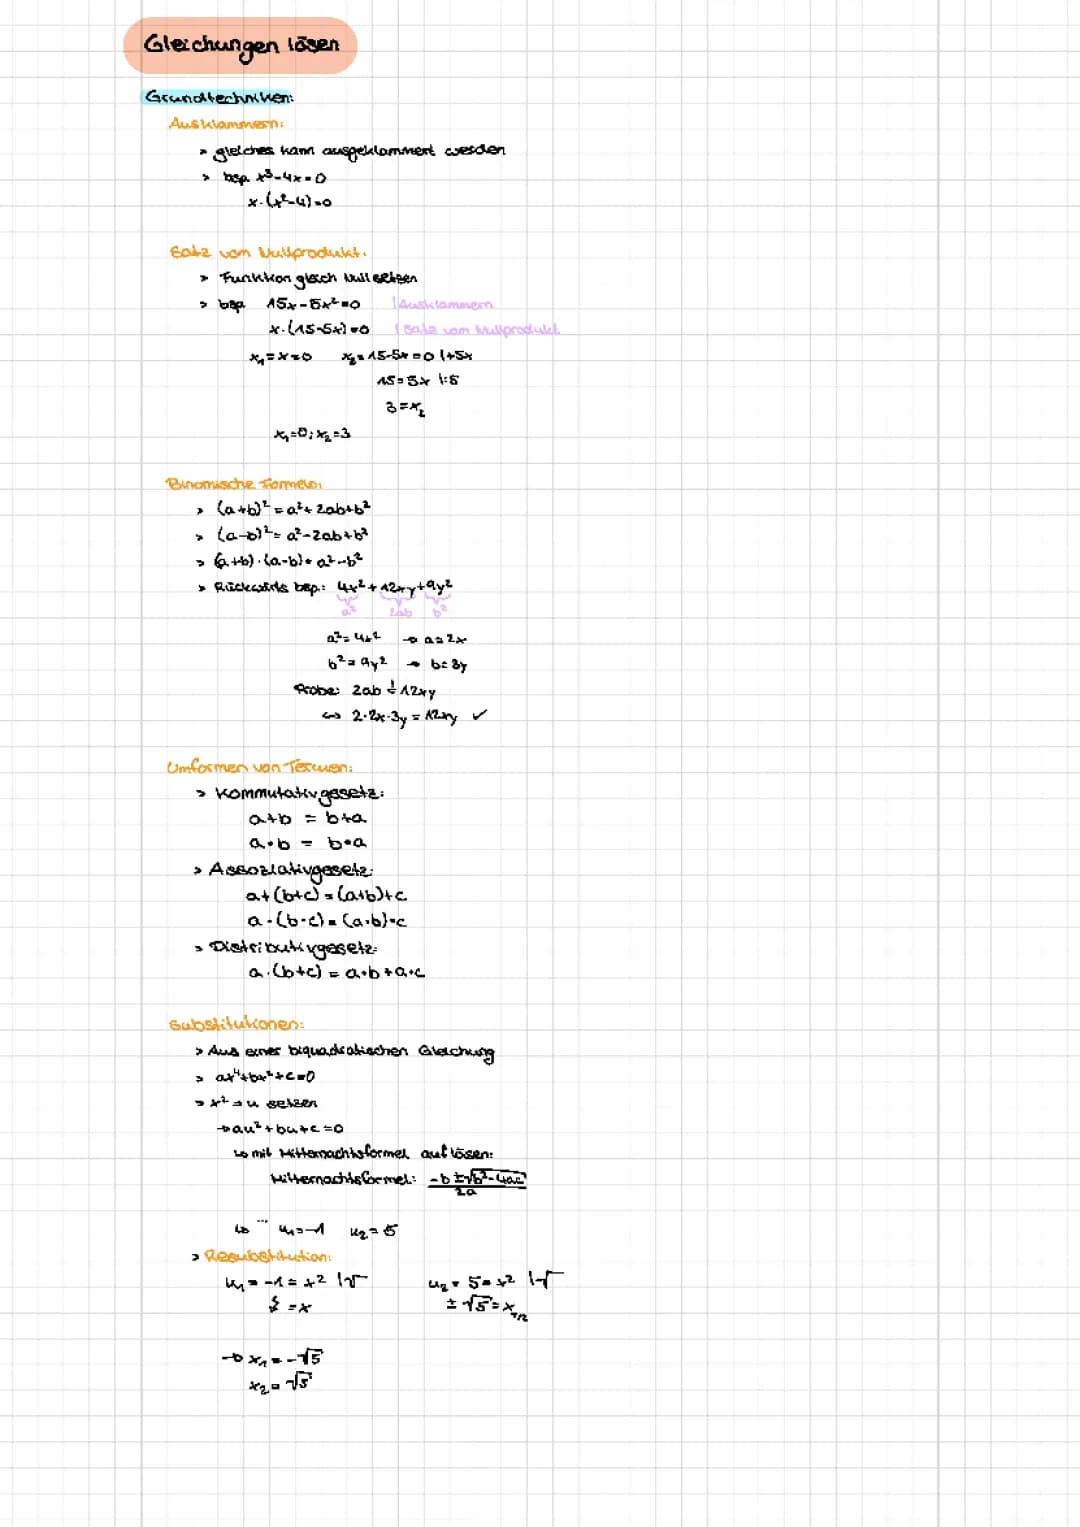 Gleichungen lösen
Grundtechniken:
Ausklammern:
> gleiches kann ausgeklammert werden
> bsp. x³-4x=0
x·(x²-4)=0
Satz vom Nullprodukt:
> Funktion gleich Null setzen
> bsp. 15x-5x²=0 |Ausklammern
x·(15-5x)=0 |Satz vom Nullprodukt
x₁=x=0 x₂=15-5x=0 |+5x
15=5x |:5
3=x₂
x₁=0; x₂=3
Binomische Formeln:
> (a+b)²=a²+2ab+b²
> (a-b)²=a²-2ab+b²
> (a+b)·(a-b)=a²-b²
> Rückwärts bsp.: 4x²+12xy+9y²
a² 2ab b²
a²=4x² → a=2x
b²=9y² → b=3y
Probe: 2ab != 12xy
↔ 2·2x·3y=12xy ✓
Umformen von Termen:
> Kommutativgesetz:
a+b = b+a
a·b = b·a
> Assoziativgesetz:
a+(b+c)=(a+b)+c
a·(b·c)=(a·b)·c
> Distributivgesetz:
a·(b+c)=a·b+a·c
Substitutionen:
> Aus einer biquadratischen Gleichung
> ax⁴+bx²+c=0
> x²=u setzen
→au²+bu+c=0
↳ mit Mitternachtsformel auflösen:
Mitternachtsformel: (-b±√(b²-4ac))/2a
↳ ... u₁=-1 u₂=5
> Resubstitution:
u₁=-1=x² |√ u₂=5=x² |√
↯=x ±√5=x₁/₂
→ x₁=-√5
x₂=√5